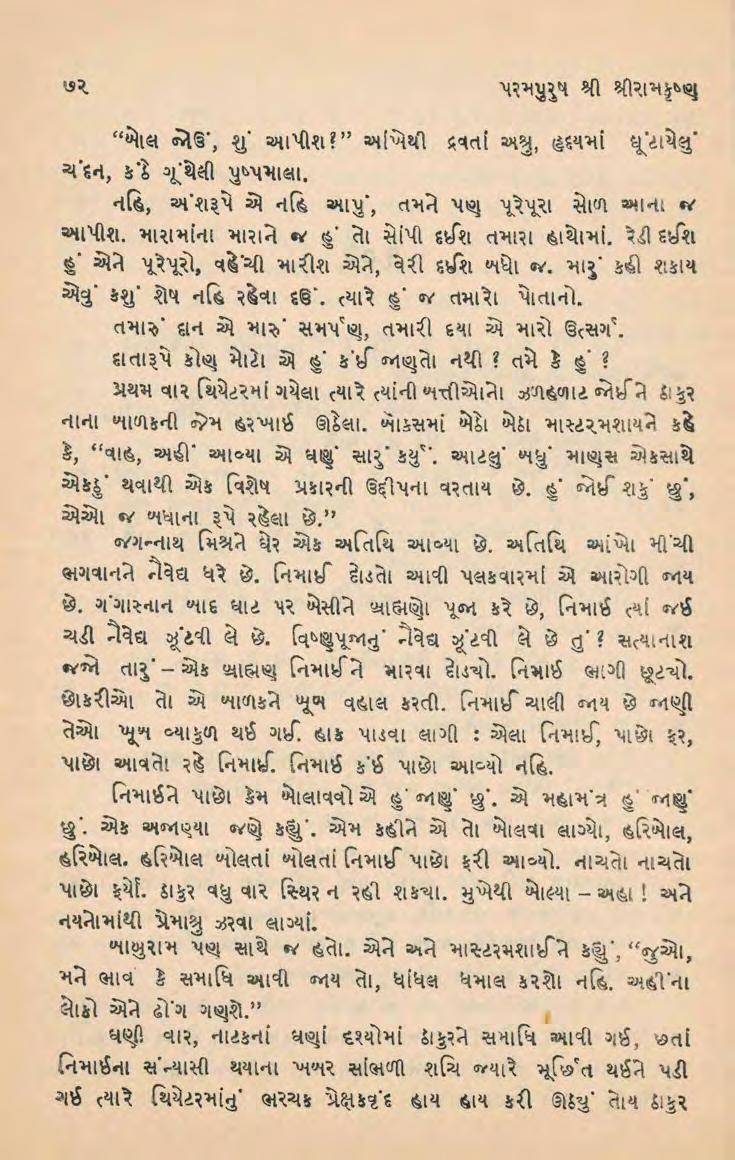 ૭૨ પરમપુરુષ શ્રી શ્રીરામકૃષ્ણ
“બોલ જોઉં, શું આપીશ?” આંખેથી દ્રવતાં અશ્રુ, હૃદયમાં ઘૂંટાયેલું
ચંદન, કંઠે ગૂંથેલી પુષ્પમાલા.
નહિ, અંશરૂપે એ નહિ આપું, તમને પણ પૂરેપૂરા સોળ આના જ
આપીશ. મારામાંના મારાને જ હું તો સોંપી દઈશ તમારા હાથોમાં. રેડી દઈશ
હું એને પૂરેપૂરો, વહેંચી મારીશ એને, વેરી દઈશ બધો જ. મારું કહી શકાય
એવું કશું શેષ નહિ રહેવા દઉં. ત્યારે હું જ તમારો પોતાનો.
તમારું દાન એ મારું સમર્પણ, તમારી દયા એ મારો ઉત્સર્ગ.
દાતારૂપે કોણ મોટો એ હું કંઈ જાણતો નથી ? તમે કે હું ?
પ્રથમ વાર થિયેટરમાં ગયેલા ત્યારે ત્યાંની બત્તીઓનો ઝળહળાટ જોઈને ઠાકુર
નાના બાળકની જેમ હરખાઈ ઊઠેલા. બૉક્સમાં બેઠો બેઠા માસ્ટરમશાયને કહે
કે, “વાહ, અહીં આવ્યા એ ઘણું સારું કર્યું. આટલું બધું માણસ એકસાથે
એકઠું થવાથી એક વિશેષ પ્રકારની ઉદ્દીપના વરતાય છે. હું જોઈ શકું છું,
એઓ જ બધાના રૂપે રહેલા છે.”
જગન્નાથ મિશ્રને ઘેર એક અતિથિ આવ્યા છે. અતિથિ આંખો મીંચી
ભગવાનને નૈવેદ્ય ધરે છે. નિમાઈ દોડતો આવી પલકવારમાં એ આરોગી જાય
છે. ગંગાસ્નાન બાદ ઘાટ પર બેસીને બ્રાહ્મણો પૂજા કરે છે, નિમાઈ ત્યાં જઈ
ચડી નૈવેદ્ય ઝૂંટવી લે છે. વિષ્ણુપૂજાનું નૈવેદ્ય ઝૂંટવી લે છે તું ? સત્યાનાશ
જજો તારું – એક બ્રાહ્મણ નિમાઈને મારવા દોડચો. નિમાઈ ભાગી છૂટચો.
છોકરીઓ તો એ બાળકને ખૂબ વહાલ કરતી. નિમાઈ ચાલી જાય છે જાણી
તેઓ ખૂબ વ્યાકુળ થઈ ગઈ. હાક પાડવા લાગી : એલા નિમાઈ, પાછો ફર,
પાછો આવતો રહે નિમાઈ. નિમાઈ કંઈ પાછો આવ્યો નહિ.
નિમાઈને પાછો કેમ બોલાવવો એ હું જાણું છું. એ મહામંત્ર હું જાણું
છું. એક અજાણ્યા જણે કહ્યું. એમ કહીને એ તો બોલવા લાગ્યો, હરિબોલ,
હરિબોલ. હરિબોલ બોલતાં બોલતાં નિમાઈ પાછો ફરી આવ્યો. નાચતો નાચતો
પાછો ફર્યો. ઠાકુર વધુ વાર સ્થિર ન રહી શકચા. મુખેથી બોલ્યા – અહા ! અને
નયનોમાંથી પ્રેમાશ્રુ ઝરવા લાગ્યાં.
બાબુરામ પણ સાથે જ હતો. એને અને માસ્ટરમશાઈને કહ્યું, “જુઓ,
મને ભાવ કે સમાધિ આવી જાય તો, ધાંધલ ધમાલ કરશો નહિ. અહીંના
લોકો એને ઢોંગ ગણશે.”
ઘણી વાર, નાટકનાં ઘણાં દૃશ્યોમાં ઠાકુરને સમાધિ આવી ગઈ, છતાં
નિમાઈના સંન્યાસી થયાના ખબર સાંભળી શચિ જ્યારે મૂર્છિત થઈને પડી
ગઈ ત્યારે થિયેટરમાંનું ભરચક પ્રેક્ષકવૃંદ હાય હાય કરી ઊઠચું તોય ઠાકુર